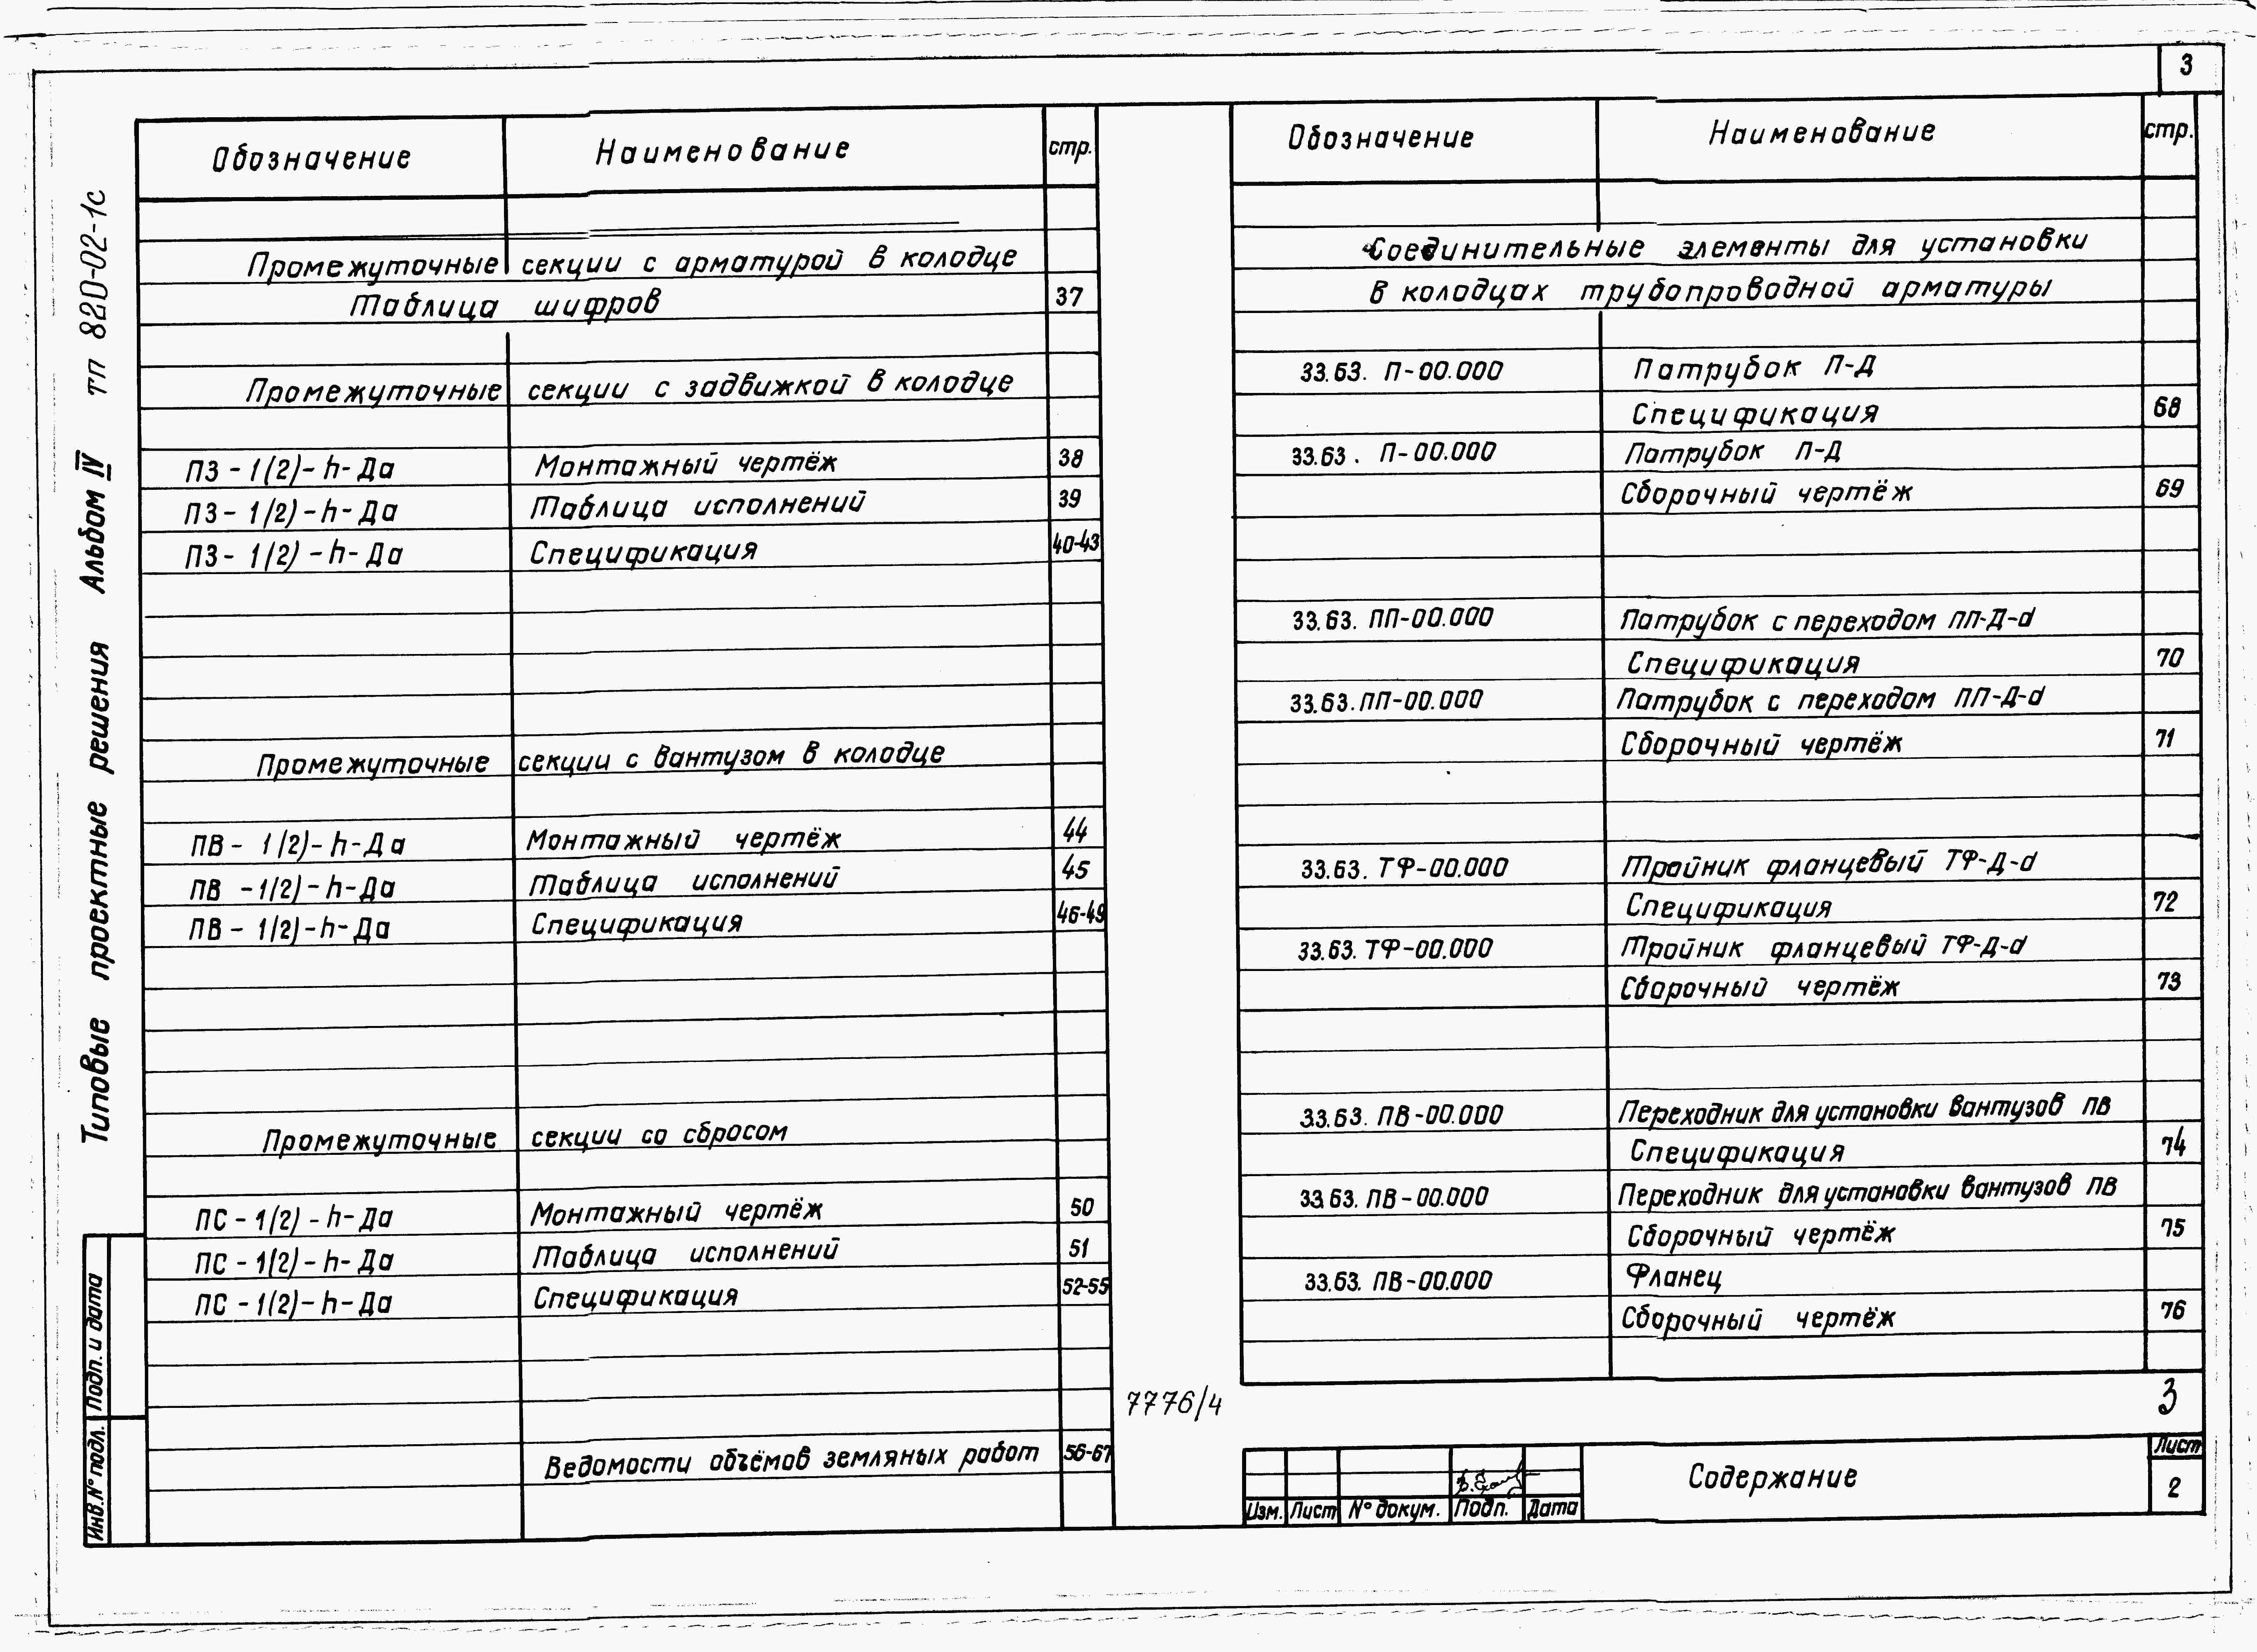 3
Типовые проектные решения Альбом IV тп 820-02-1с
Обозначение Наименование стр.
Промежуточные секции с арматурой в колодце
Таблица шифров 37
Промежуточные секции с задвижкой в колодце
ПЗ-1(2)-h-Да Монтажный чертёж 38
ПЗ-1(2)-h-Да Таблица исполнений 39
ПЗ-1(2)-h-Да Спецификация 40-43
Промежуточные секции с вантузом в колодце
ПВ-1(2)-h-Да Монтажный чертёж 44
ПВ-1(2)-h-Да Таблица исполнений 45
ПВ-1(2)-h-Да Спецификация 46-49
Промежуточные секции со сбросом
ПС-1(2)-h-Да Монтажный чертёж 50
ПС-1(2)-h-Да Таблица исполнений 51
ПС-1(2)-h-Да Спецификация 52-55
Ведомости объёмов земляных работ 56-67
Обозначение Наименование стр.
Соединительные элементы для установки
в колодцах трубопроводной арматуры
33.63. П-00.000 Патрубок П-Д
Спецификация 68
33.63. П-00.000 Патрубок П-Д
Сборочный чертёж 69
33.63. ПП-00.000 Патрубок с переходом ПП-Д-d
Спецификация 70
33.63. ПП-00.000 Патрубок с переходом ПП-Д-d
Сборочный чертёж 71
33.63. ТФ-00.000 Тройник фланцевый ТФ-Д-d
Спецификация 72
33.63. ТФ-00.000 Тройник фланцевый ТФ-Д-d
Сборочный чертёж 73
33.63. ПВ-00.000 Переходник для установки вантузов ПВ
Спецификация 74
33.63. ПВ-00.000 Переходник для установки вантузов ПВ
Сборочный чертёж 75
33.63. ПВ-00.000 Фланец
Сборочный чертёж 76
7776/4
3
Изм. Лист № докум. Подп. Дата
Содержание
Лист
2
Инв. № подл. Подп. и дата